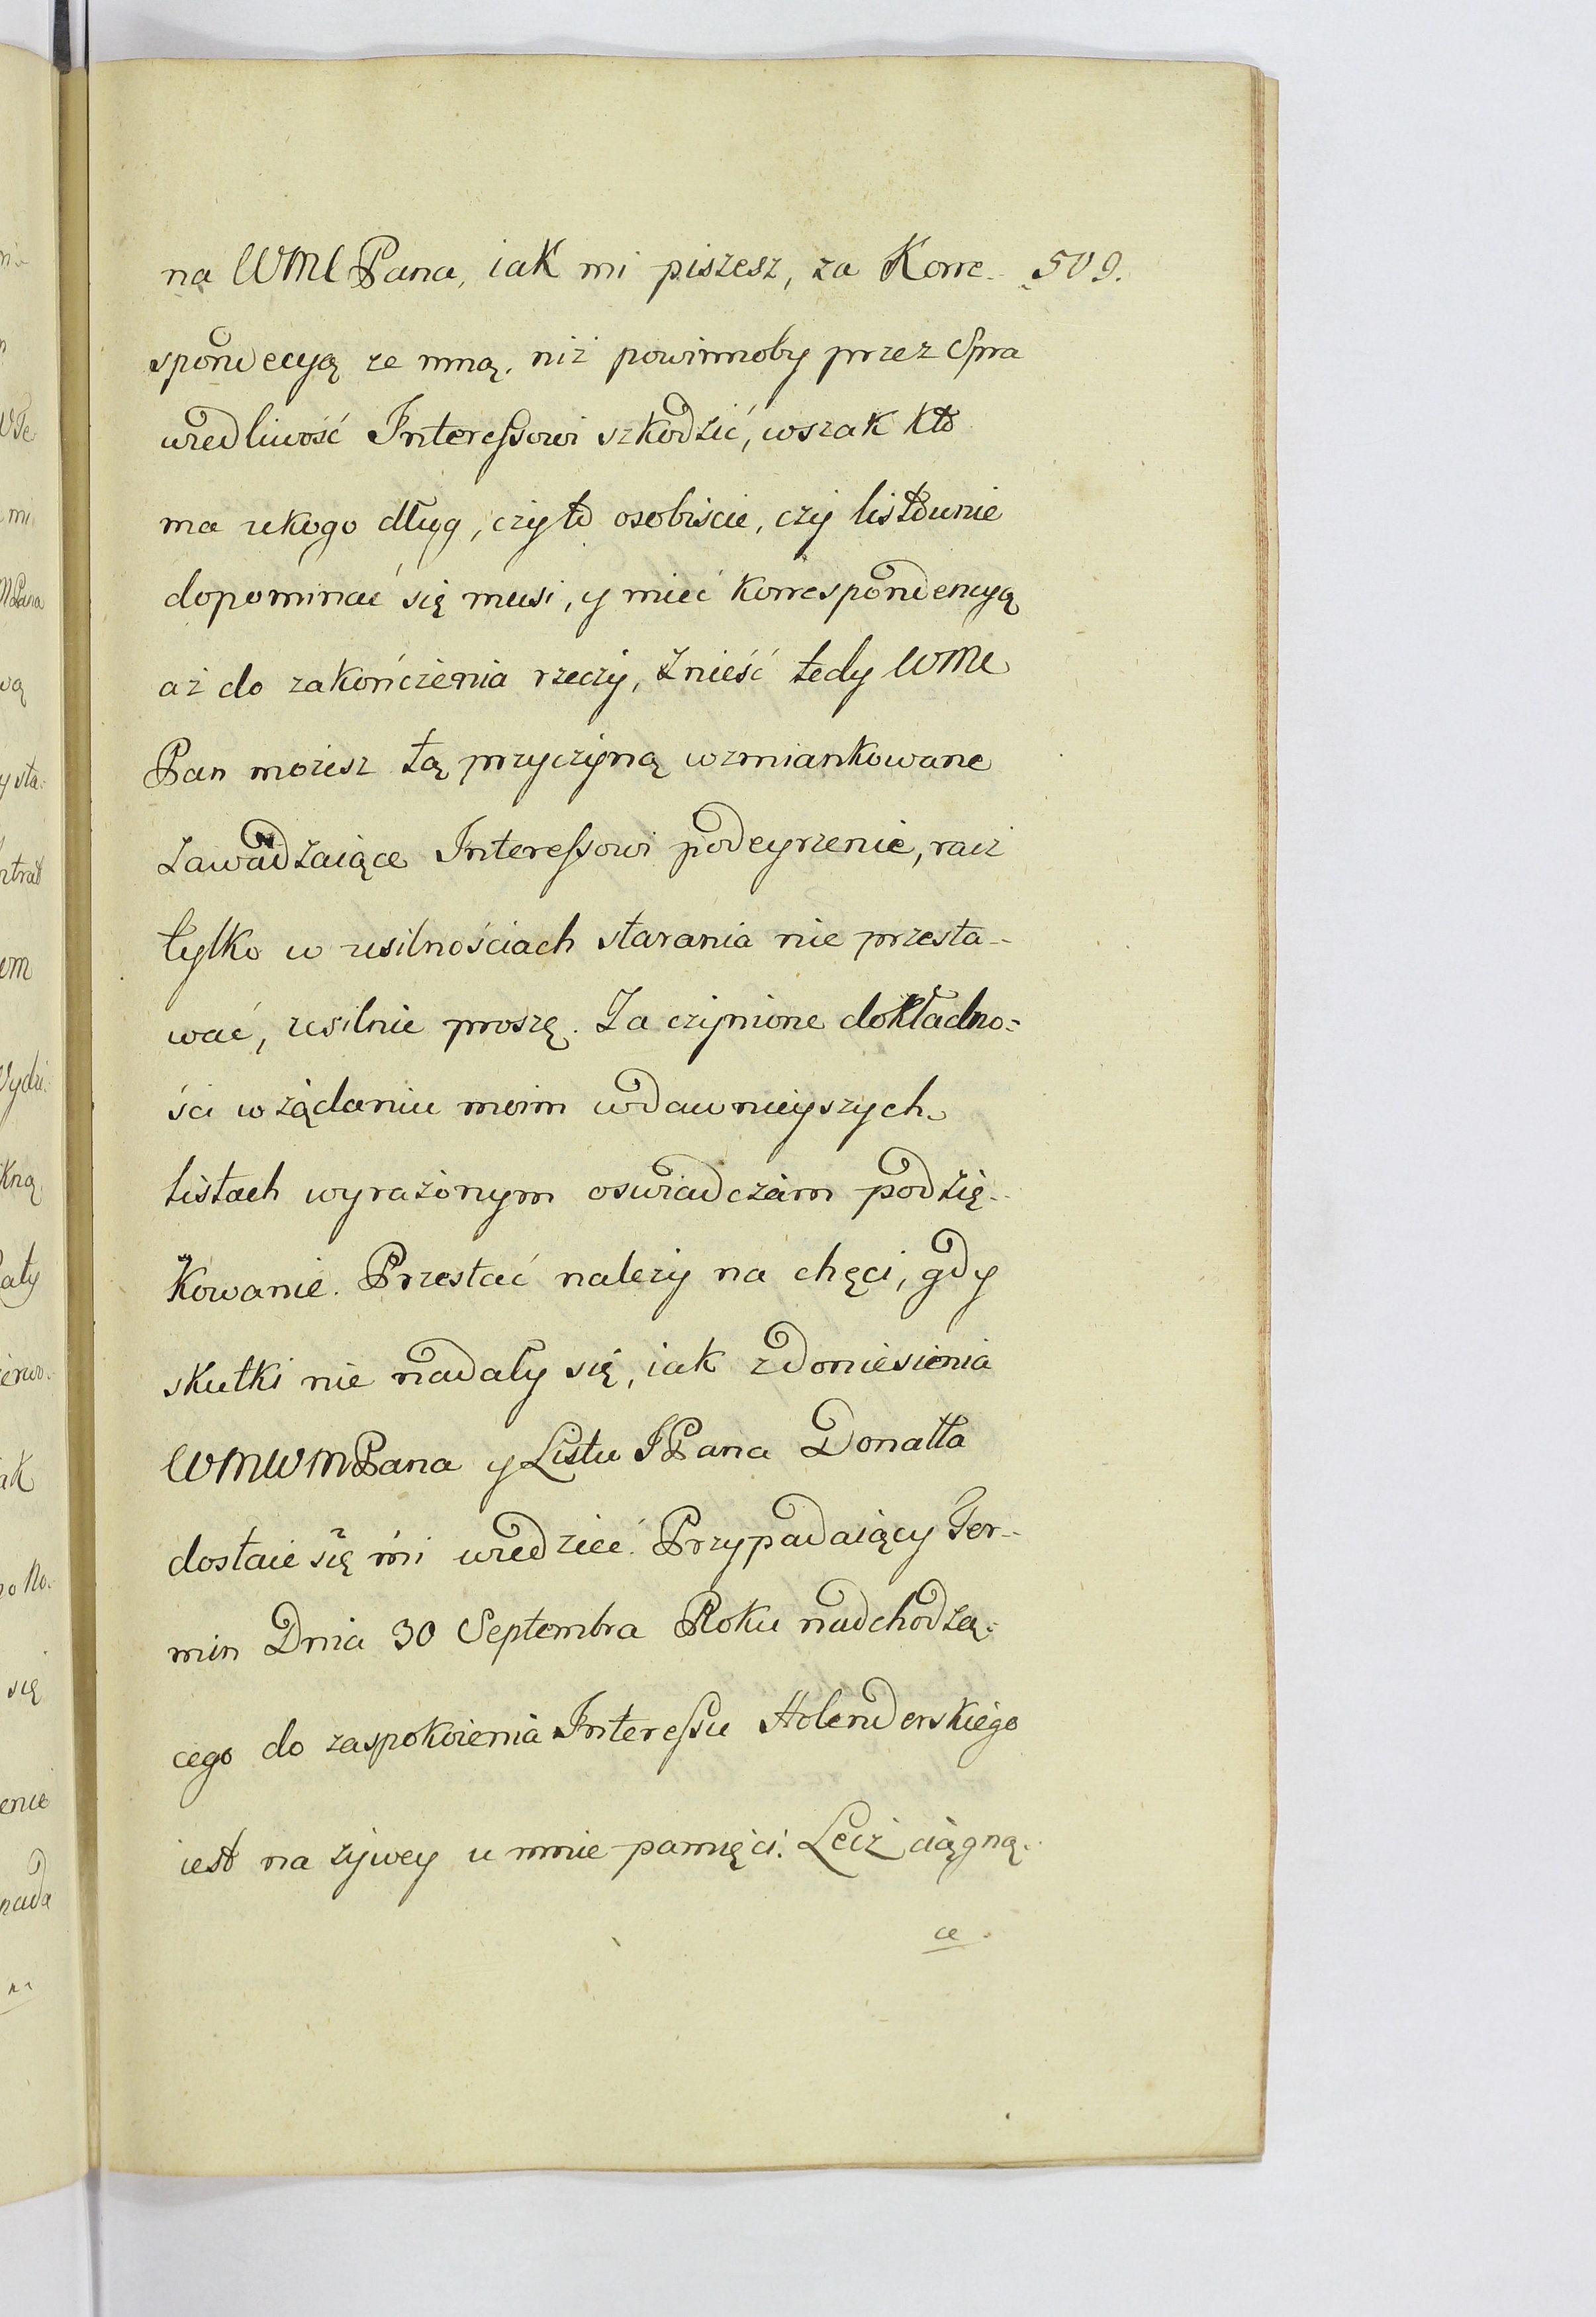 na WMC Pana, iak mi piszesz, za Korre- 509.
spondecyą ze mną, niż powinnoby przez Spra
wiedliwość Interessowi szkodzić, wszak kto
ma ukogo dług, czyto osobiscie, czy listownie
dopominać się musi, y mieć korrespondencyą
aż do zakończenia rzeczy, Znieść tedy WMC
Pan możesz tą przyczyną wzmiankowane
zawadzaiące Interessowi podeyrzenie, racz
tylko w usilnościach starania nie przesta-
wać, usilnie proszę. Za czynione dokładno=
ści w żądaniu moim wdawnieyszych
listach wyrażonym oswiadczam podzię-
kowanie. Przestać należy na chęci, gdy
skutki nie nadały się, iak zdoniesienia
WMWMPana y Listu JPana Donatta
dostaie się mi wiedzieć. Przypadaiący Ter-
min Dnia 30 Septembra Roku nadchodzą=
cego do zaspokoienia Interessu Holenderskiego
iest na żywey u mnie pamięci. Lecz ciągną-
ce.